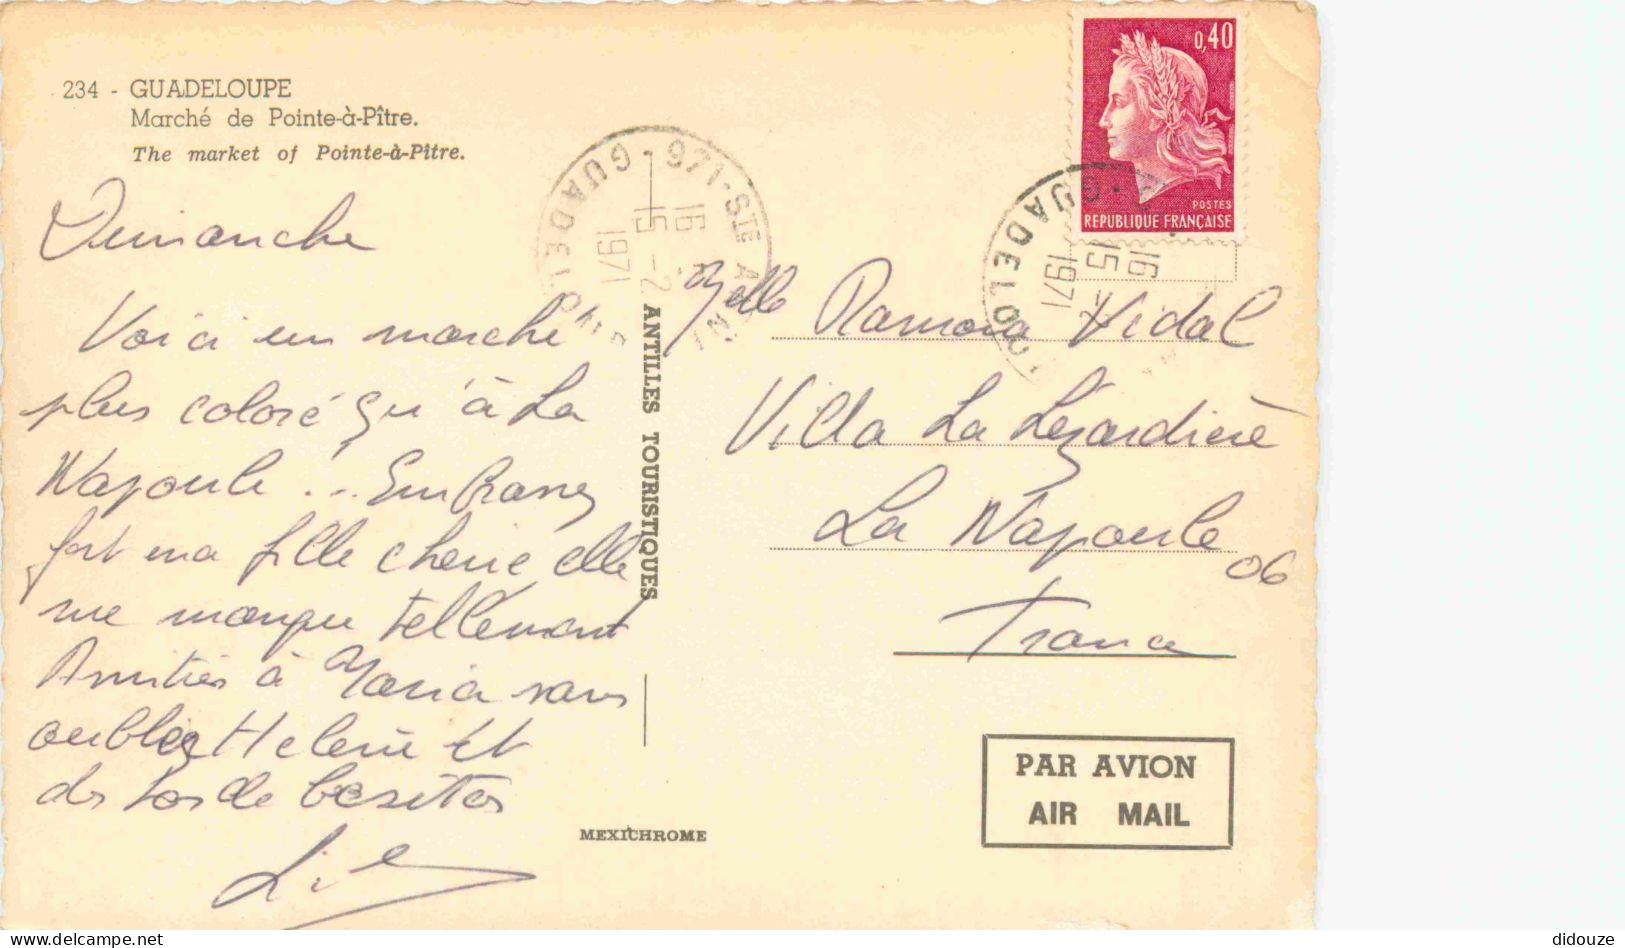 234 - GUADELOUPE
Marché de Pointe-à-Pître.
The market of Pointe-à-Pître.
Dimanche
Voici un marché
plus coloré qu'à La
Napoule... Embrasse
fort ma fille cherie elle
me manque tellement
Amitiés à Maria sans
oublier Helene et
des tas de besitos
ANTILLES TOURISTIQUES
MEXICHROME
971-STE A
GUADEL
16
15-2
1971
0,40
POSTES
REPUBLIQUE FRANÇAISE
GUADELOU
16
15
1971
Melle Ramona Vidal
Villa La Lézardière
La Napoule
06
France
PAR AVION
AIR MAIL
didouze